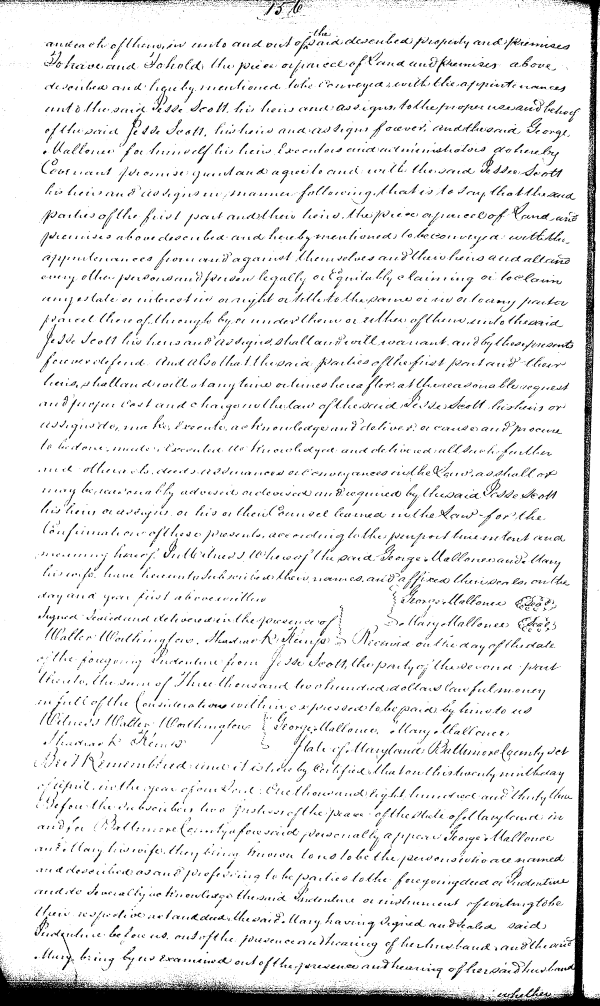 156
and each of them, in unto and out of the said described property and premises
To have and To hold the piece or parcel of Land and premises above
described and hereby mentioned to be conveyed with the appurtenances
unto the said Jesse Scott, his heirs and assigns to the proper use and behoof
of the said Jesse Scott, his heirs and assigns forever, and the said George
Mallonee for himself his heirs, Executors and administrators do hereby
Covenant promise grant and agree to and with the said Jesse Scott
his heirs and assigns in manner following, that is to say, that the said
parties of the first part and their heirs, the piece or parcel of Land and
premises above described and hereby mentioned to be conveyed with the
appurtenances from and against themselves and their heirs and all and
every other persons and person legally or Equitably claiming or to claim
any estate or interest in or right or title to the same or in or to any part or
parcel thereof, through by or under them or either of them, unto the said
Jesse Scott his heirs and assigns shall and will warrant and by these presents
forever defend. And also that the said parties of the first part and their
heirs, shall and will at any time or times hereafter, at the reasonable request
and proper cost and charge in the law of the said Jesse Scott his heirs or
assigns do, make, Execute, acknowledge and deliver, or cause and procure
to be done, made, Executed acknowledged and delivered all such further
and other acts, deeds, assurances or Conveyances in the Law, as shall or
may be reasonably advised or devised and required by the said Jesse Scott
his heirs or assigns, or his or their Counsel learned in the Law for the
Confirmation of these presents, according to the purport true intent and
meaning hereof In Witness Whereof the said George Mallonee and Mary
his wife have hereunto Subscribed their names, and affixed their seals on the
day and year first above written George Mallonee Seal
Signed Sealed and delivered in the presence of Mary Mallonee Seal
Walter Worthington, Shadrach Kemp Received on the day of the date
of the foregoing Indenture from Jesse Scott, the party of the second part
thereto, the sum of Three thousand two hundred dollars lawful money
in full of the Consideration within expressed to be paid by him to us
Witness Walter Worthington George Mallonee, Mary Mallonee
Shadrach Kemp State of Maryland Baltimore County Sct
Be it Remembered and it is hereby certified that on this twenty ninth day
of april in the year of our Lord One thousand eight hundred and thirty three
Before the subscribers two Justices of the peace of the State of Maryland in
and for Baltimore County aforesaid personally appear George Mallonee
and Mary his wife they being known to us to be the persons who are named
and described as and professing to be parties to the foregoing deed or Indenture
and do Severally acknowledge the said Indenture or instrument of writing to be
their respective act and deed, the said Mary having Signed and Sealed said
Indenture before us, out of the presence and hearing of her husband, and the said
Mary being by us Examined out of the presence and hearing of her said husband
whether